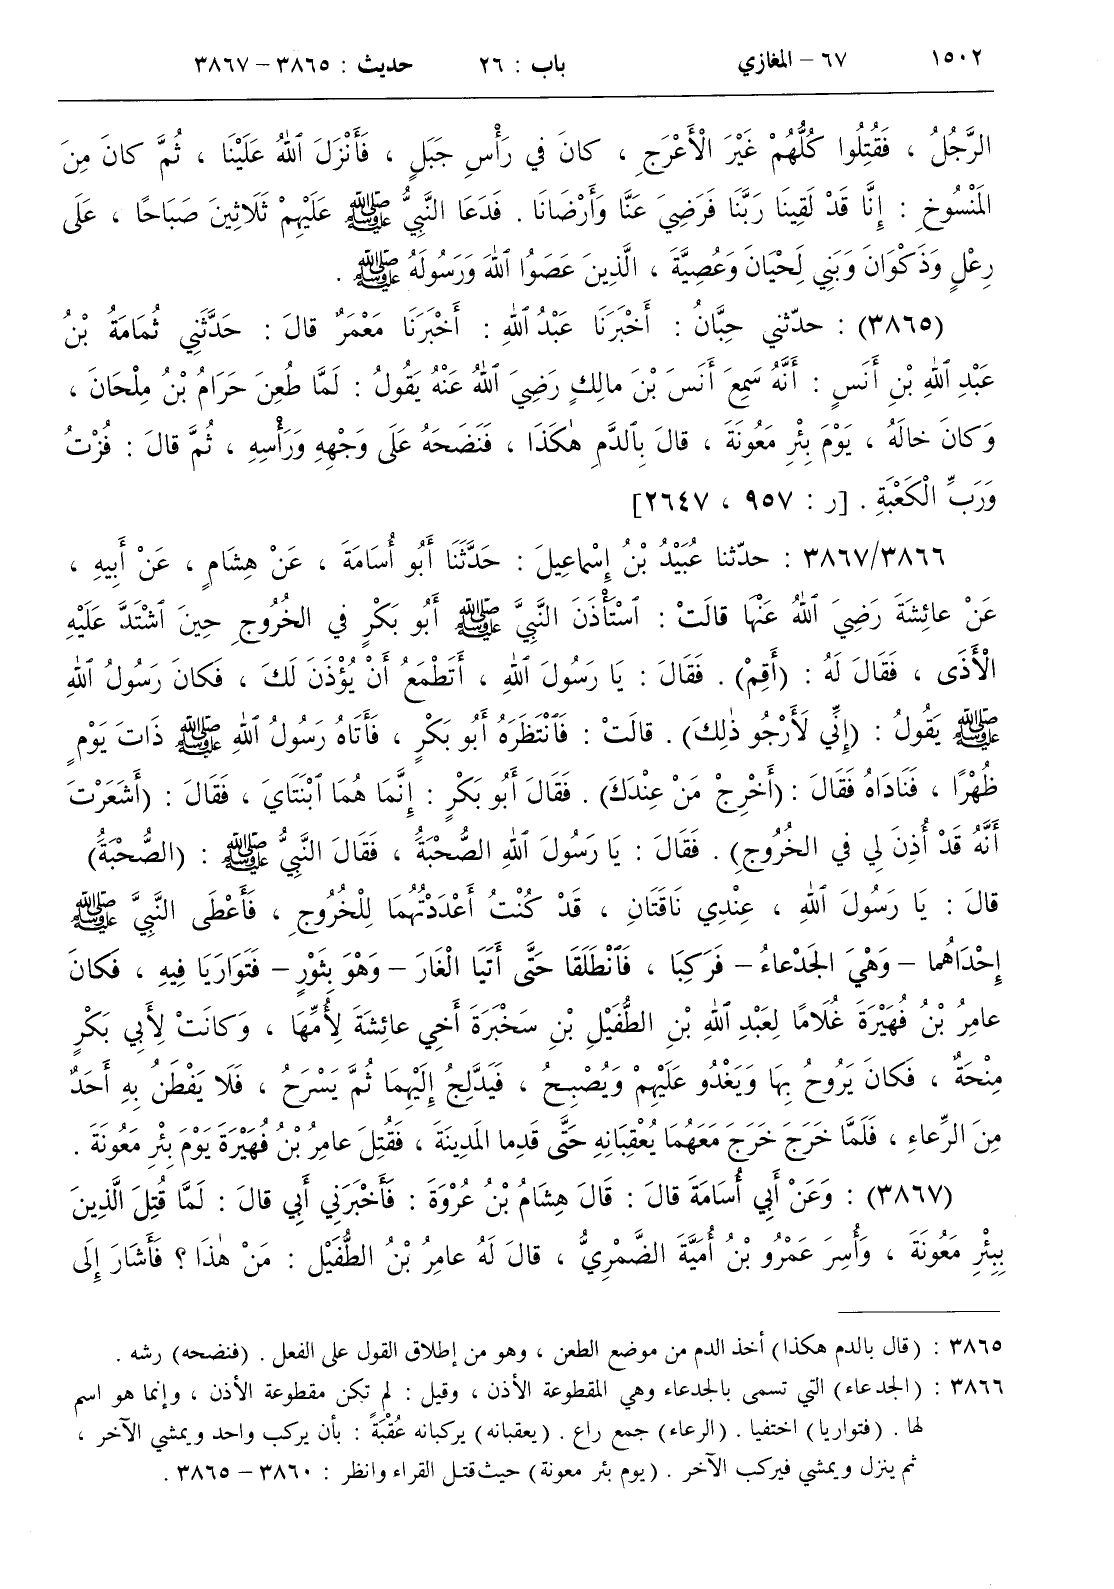 ١٥٠٢ ٦٧ – المغازي باب : ٢٦ حديث : ٣٨٦٥ – ٣٨٦٧
الرَّجُلُ ، فَقُتِلُوا كُلُّهُمْ غَيْرَ الْأَعْرَجِ ، كانَ في رَأْسِ جَبَلٍ ، فَأَنْزَلَ ٱللهُ عَلَيْنَا ، ثُمَّ كانَ مِنَ
المَنْسُوخِ : إِنَّا قَدْ لَقِينَا رَبَّنَا فَرَضِيَ عَنَّا وَأَرْضَانَا . فَدَعَا النَّبِيُّ ﷺ عَلَيْهِمْ ثَلَاثِينَ صَبَاحًا ، عَلَى
رِعْلٍ وَذَكْوَانَ وَبَنِي لِحْيَانَ وَعُصِيَّةَ ، الَّذِينَ عَصَوُا ٱللهَ وَرَسُولَهُ ﷺ .
(٣٨٦٥) : حدّثني حِبَّانُ : أَخْبَرَنَا عَبْدُ ٱللهِ : أَخْبَرَنَا مَعْمَرٌ قالَ : حَدَّثَنِي ثُمَامَةُ بْنُ
عَبْدِ ٱللهِ بْنِ أَنَسٍ : أَنَّهُ سَمِعَ أَنَسَ بْنَ مالِكٍ رَضِيَ ٱللهُ عَنْهُ يَقُولُ : لَمَّا طُعِنَ حَرَامُ بْنُ مِلْحَانَ ،
وَكانَ خالَهُ ، يَوْمَ بِئْرِ مَعُونَةَ ، قالَ بِٱلدَّمِ هٰكَذَا ، فَنَضَحَهُ عَلَى وَجْهِهِ وَرَأْسِهِ ، ثُمَّ قالَ : فُزْتُ
وَرَبِّ الْكَعْبَةِ . [ر : ٩٥٧ ، ٢٦٤٧]
٣٨٦٧/٣٨٦٦ : حدّثنا عُبَيْدُ بْنُ إِسْماعِيلَ : حَدَّثَنَا أَبُو أُسَامَةَ ، عَنْ هِشَامٍ ، عَنْ أَبِيهِ ،
عَنْ عائِشَةَ رَضِيَ ٱللهُ عَنْهَا قالَتْ : ٱسْتَأْذَنَ النَّبِيَّ ﷺ أَبُو بَكْرٍ في الخُرُوجِ حِينَ ٱشْتَدَّ عَلَيْهِ
الْأَذَى ، فَقَالَ لَهُ : (أَقِمْ) . فَقَالَ : يَا رَسُولَ ٱللهِ ، أَتَطْمَعُ أَنْ يُؤْذَنَ لَكَ ، فَكانَ رَسُولُ ٱللهِ
ﷺ يَقُولُ : (إِنِّي لَأَرْجُو ذٰلِكَ) . قالَتْ : فَٱنْتَظَرَهُ أَبُو بَكْرٍ ، فَأَتَاهُ رَسُولُ ٱللهِ ﷺ ذَاتَ يَوْمٍ
ظُهْرًا ، فَنَادَاهُ فَقَالَ : (أَخْرِجْ مَنْ عِنْدَكَ) . فَقَالَ أَبُو بَكْرٍ : إِنَّمَا هُمَا ٱبْنَتَايَ ، فَقَالَ : (أَشَعَرْتَ
أَنَّهُ قَدْ أُذِنَ لِي في الخُرُوجِ) . فَقَالَ : يَا رَسُولَ ٱللهِ الصُّحْبَةُ ، فَقَالَ النَّبِيُّ ﷺ : (الصُّحْبَةُ)
قالَ : يَا رَسُولَ ٱللهِ ، عِنْدِي نَاقَتَانِ ، قَدْ كُنْتُ أَعْدَدْتُهُمَا لِلْخُرُوجِ ، فَأَعْطَى النَّبِيَّ ﷺ
إِحْدَاهُما – وَهْيَ الجَدْعاءُ – فَرَكِبَا ، فَٱنْطَلَقَا حَتَّى أَتَيَا الْغَارَ – وَهْوَ بِثَوْرٍ – فَتَوَارَيَا فِيهِ ، فَكانَ
عامِرُ بْنُ فُهَيْرَةَ غُلَامًا لِعَبْدِ ٱللهِ بْنِ الطُّفَيْلِ بْنِ سَخْبَرَةَ أَخِي عائِشَةَ لِأُمِّهَا ، وَكانَتْ لِأَبِي بَكْرٍ
مِنْحَةٌ ، فَكانَ يَرُوحُ بِهَا وَيَغْدُو عَلَيْهِمْ وَيُصْبِحُ ، فَيَدَّلِجُ إِلَيْهِمَا ثُمَّ يَسْرَحُ ، فَلَا يَفْطَنُ بِهِ أَحَدٌ
مِنَ الرِّعاءِ ، فَلَمَّا خَرَجَ خَرَجَ مَعَهُمَا يُعْقِبَانِهِ حَتَّى قَدِما المَدِينَةَ ، فَقُتِلَ عامِرُ بْنُ فُهَيْرَةَ يَوْمَ بِئْرِ مَعُونَةَ .
(٣٨٦٧) : وَعَنْ أَبِي أُسَامَةَ قالَ : قَالَ هِشَامُ بْنُ عُرْوَةَ : فَأَخْبَرَنِي أَبِي قالَ : لَمَّا قُتِلَ الَّذِينَ
بِبِئْرِ مَعُونَةَ ، وَأُسِرَ عَمْرُو بْنُ أُمَيَّةَ الضَّمْرِيُّ ، قالَ لَهُ عامِرُ بْنُ الطُّفَيْلِ : مَنْ هٰذَا ؟ فَأَشَارَ إِلَى
٣٨٦٥ : (قال بالدم هكذا) أخذ الدم من موضع الطعن ، وهو من إطلاق القول على الفعل . (فنضحه) رشه .
٣٨٦٦ : (الجدعاء) التي تسمى بالجدعاء وهي المقطوعة الأذن ، وقيل : لم تكن مقطوعة الأذن ، وإنما هو اسم
لها . (فتواريا) اختفيا . (الرعاء) جمع راع . (يعقبانه) يركبانه عُقْبَةً : بأن يركب واحد ويمشي الآخر ،
ثم ينزل ويمشي فيركب الآخر . (يوم بئر معونة) حيث قتل القراء وانظر : ٣٨٦٠ – ٣٨٦٥ .